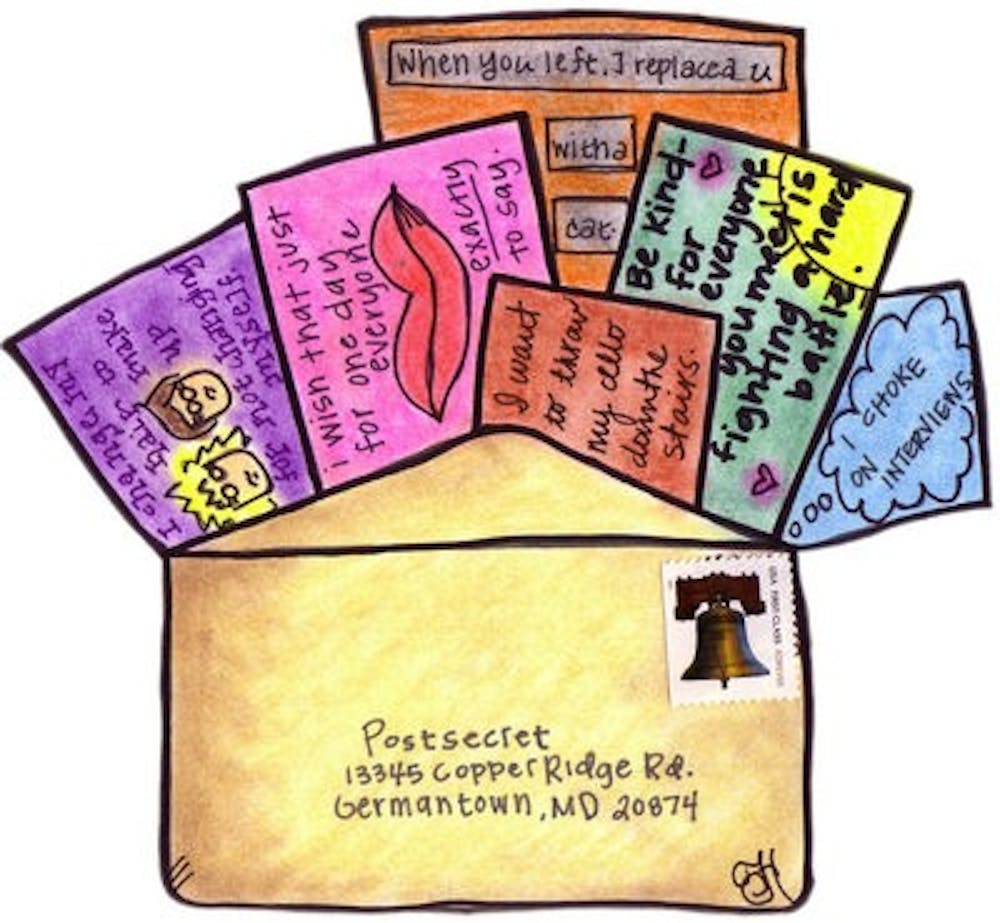 When you left, I replaced u
with a
cat.
I change my
hair to
make
up
for not changing
myself.
i wish that just
for one day
everyone
exactly
to say.
I want
to throw
my cello
down the
stairs.
Be kind-
for
everyone
you meet is
fighting a hard
battle.
I CHOKE
ON INTERVIEWS
USA FIRST-CLASS FOREVER
Postsecret
13345 Copper Ridge Rd.
Germantown, MD 20874